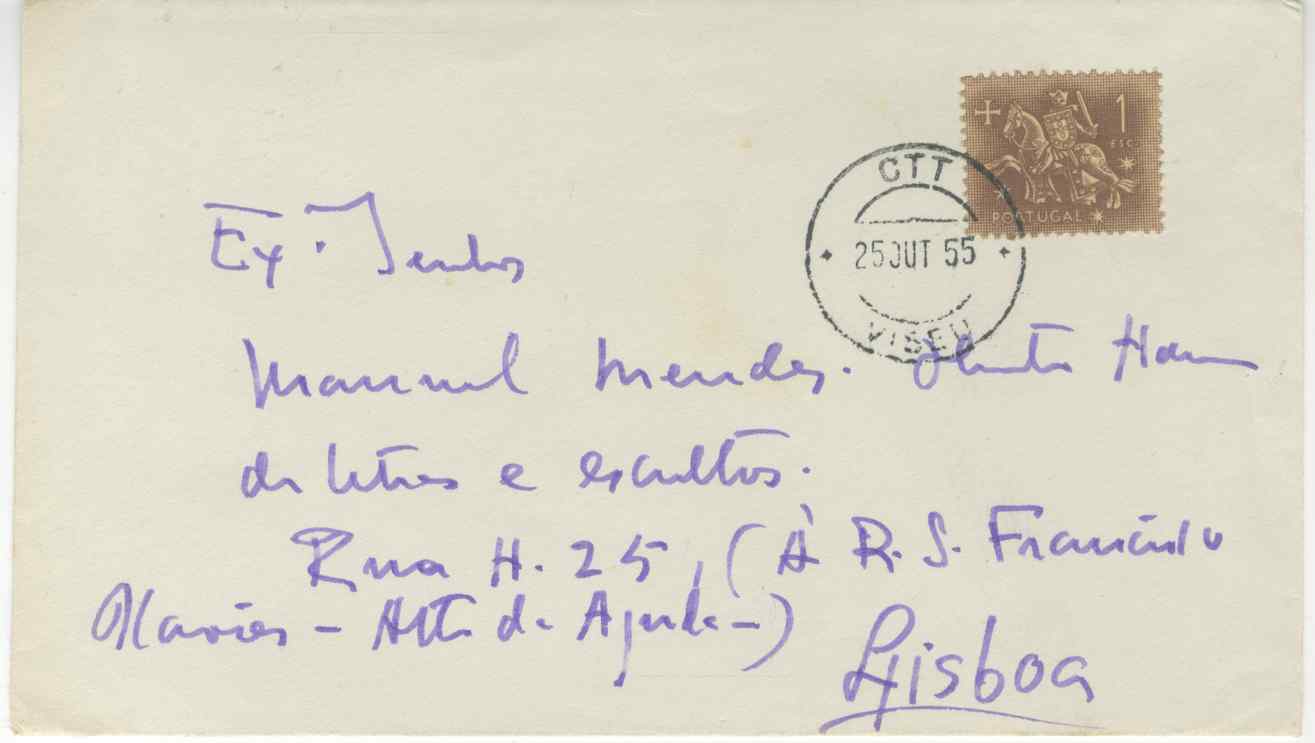 1
ESC.
PORTUGAL
CTT
25 OUT 55
VISEU
Ex.º Senhor
Manuel Mendes. Ilustre Homem
de letras e escultor.
Rua H. 25, (À R. S. Francisco
Xavier - Alto da Ajuda -)
Lisboa